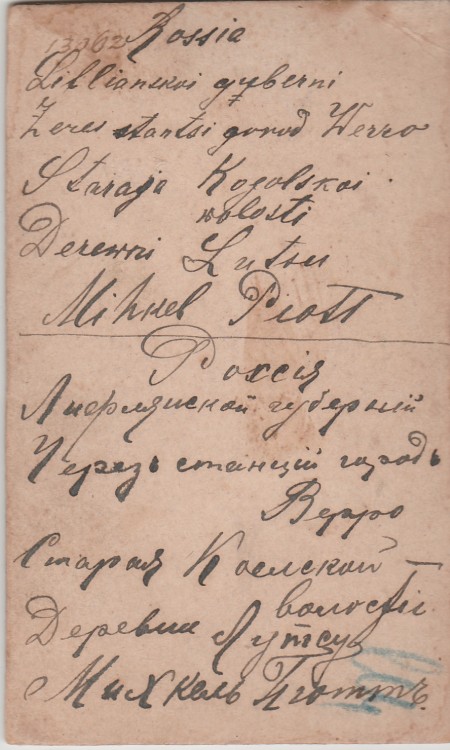 13062
Rossia
Liblianskoi guberni
Zeres stantsi gorod Werro
Staraja Kogolskoi
wolosti
Derewni Lutsu
Mihkel Piott
Рохсія
губерній
Черезъ станцій городъ
Верро
Старая Коелской
волости
Деревни Лутсу
Михкель